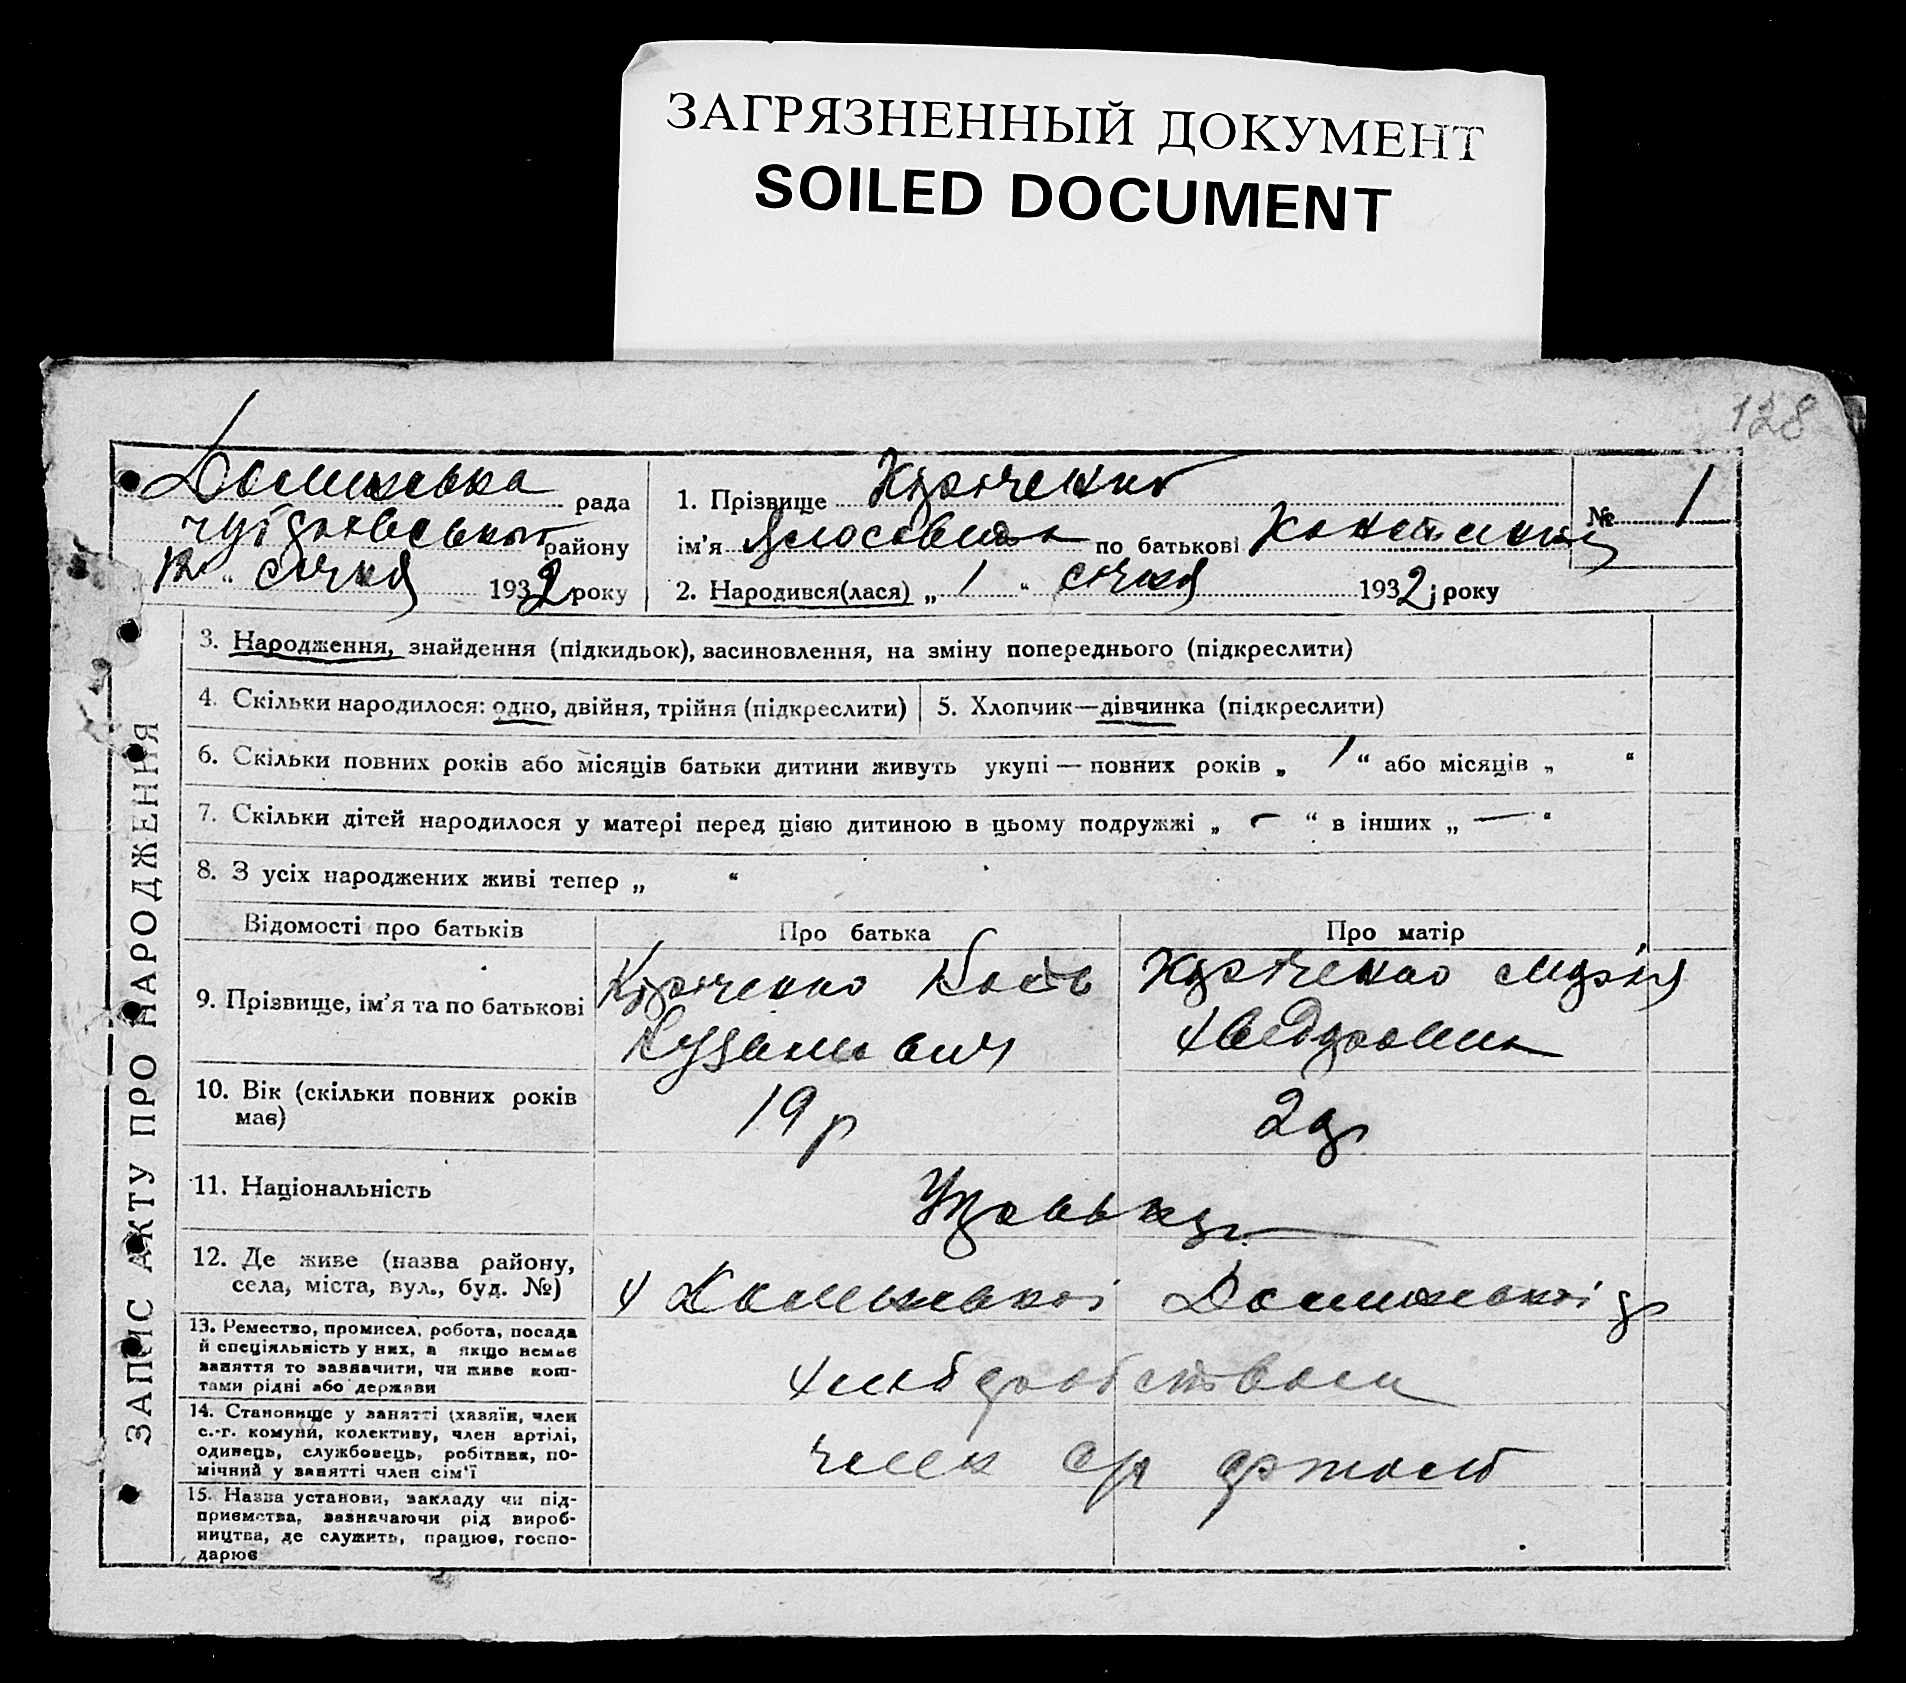 ЗАГРЯЗНЕННЫЙ ДОКУМЕНТ
SOILED DOCUMENT
128
рада
району
12 " січня 1932 року
1. Прізвище
№ 1
ім'я по батькові
2. Народився(лася) „ 1 " січня 1932 року
ЗАПИС АКТУ ПРО НАРОДЖЕННЯ
3. Народження, знайдення (підкидьок), засиновлення, на зміну попереднього (підкреслити)
4. Скільки народилося: одно, двійня, трійня (підкреслити)
5. Хлопчик—дівчинка (підкреслити)
6. Скільки повних років або місяців батьки дитини живуть укупі — повних років „ 1 " або місяців „ "
7. Скільки дітей народилося у матері перед цією дитиною в цьому подружжі „ — " в інших „ — "
8. З усіх народжених живі тепер „ "
Відомості про батьків
Про батька
Про матір
9. Прізвище, ім'я та по батькові
Кость
Марія
10. Вік (скільки повних років
має)
19 р
11. Національність
12. Де живе (назва району,
села, міста, вул., буд. №)
13. Ремество, промисел, робота, посада
й спеціяльність у них, а якщо немає
заняття то зазначити, чи живе кош-
тами рідні або держави
хліборобством
14. Становище у занятті (хазяїн, член
с.-г. комуни, колективу, член артілі,
одинець, службовець, робітник, по-
мічний у занятті член сім'ї
член с/г артелі
15. Назва установи, закладу чи під-
приємства, зазначаючи рід вироб-
ництва, де служить, працює, госпо-
дарює